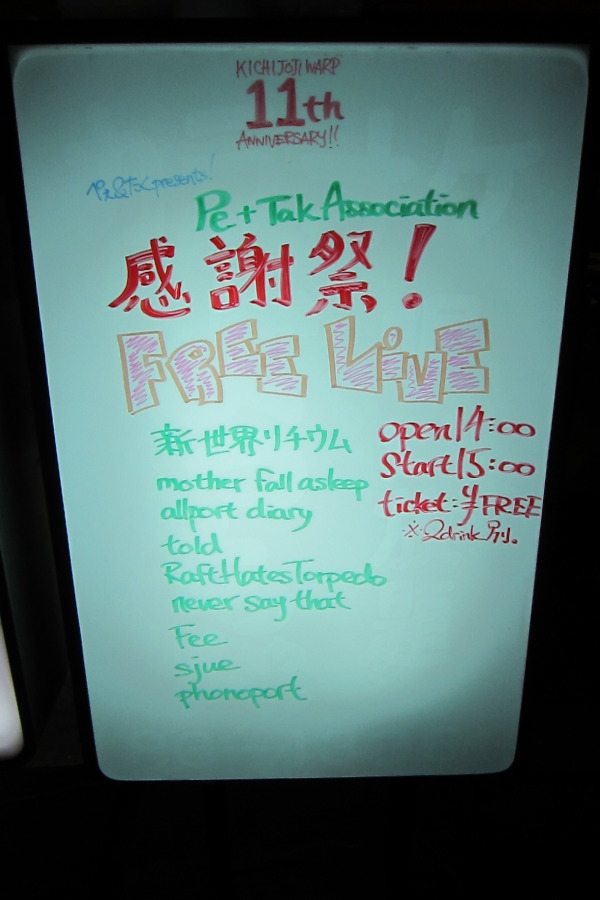 KICHIJOJI WARP
11th
ANNIVERSARY!!
ぺえ&たく presents!
Pe+Tak Association
感謝祭!
FREE LiVE
新世界リチウム
mother fall asleep
allport diary
told
RaftHatesTorpedo
never say that
Fee
sjue
phonoport
open14:00
Start15:00
ticket:¥FREE
※2drinkアリ。